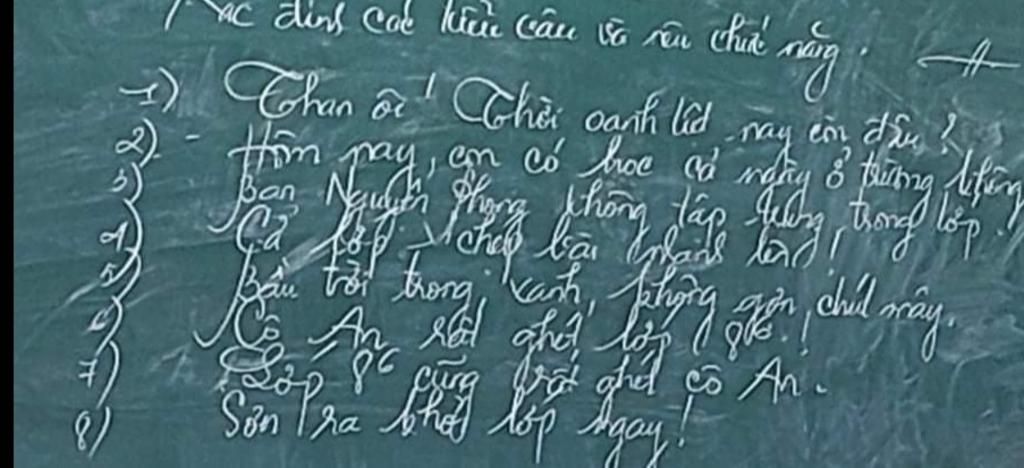 Xác định các kiểu câu và nêu chức năng.
1) Than ôi! Thời oanh liệt nay còn đâu?
2) - Hôm nay, em có học cả ngày ở trường không
3) Bạn Nguyên Phong không tập trung trong lớp.
4) Cả lớp chép bài nhanh lên!
5) Bầu trời trong xanh, không gợn chút mây.
6) Cô An rất ghét lớp 8⁶!
7) Lớp 8⁶ cũng rất ghét cô An.
8) Sơn ra khỏi lớp ngay!